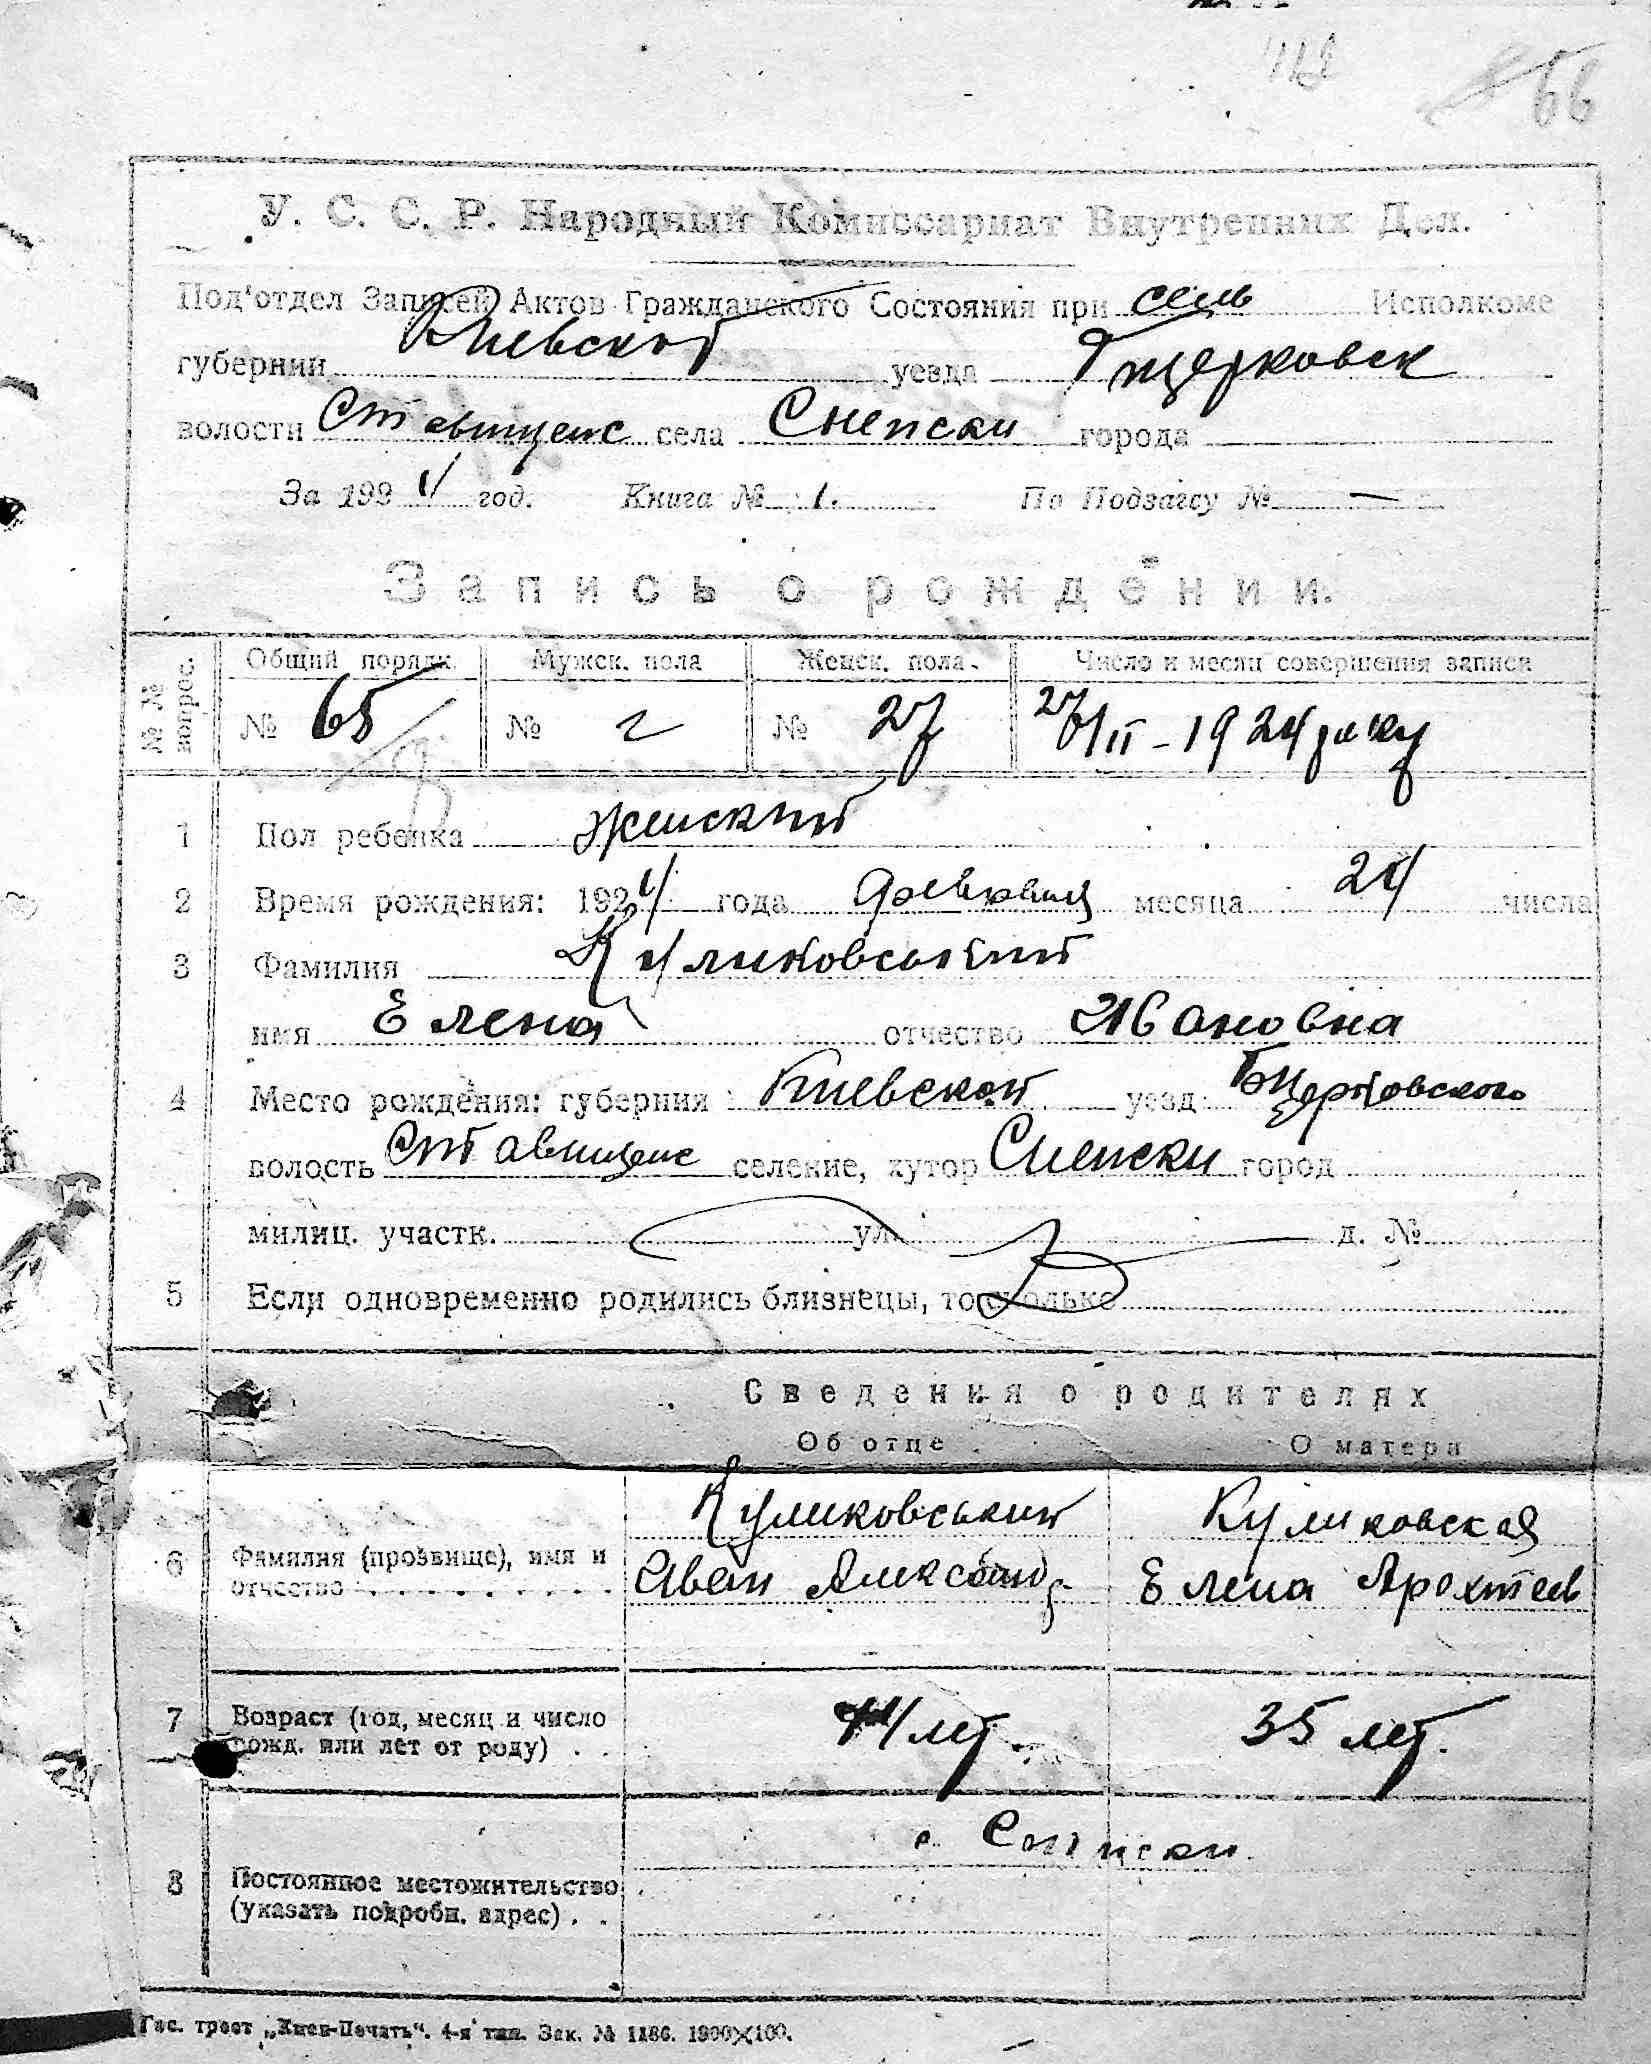 66
У. С. С. Р. Народный Комиссариат Внутренних Дел.
Под'отдел Записей Актов Гражданского Состояния при сель Исполкоме
губернии Киевской уезда Бцерковск
волости Ставищенс села Снепски города
За 1924 год. Книга № 1. По Подзагсу № —
Запись о рождении.
№ № вопрос. Общий порядк. Мужск. пола Женск. пола. Число и месяц совершения записи
№ 65 № № 27 27/II - 1924 року
1 Пол ребенка женский
2 Время рождения: 1924 года февраля месяца 24 числа
3 Фамилия Куликовський
имя Елена отчество Ивановна
4 Место рождения: губерния Киевской уезд Бцерковского
волость Ставищенс селение, хутор Снепски город
милиц. участк. ул. д. №
5 Если одновременно родились близнецы, то сколько
Сведения о родителях
Об отце О матери
6 Фамилия (прозвище), имя и отчество Куликовський Иван Александр. Куликовская Елена
7 Возраст (год, месяц и число рожд. или лет от роду) 44 лет. 35 лет.
8 Постоянное местожительство (указать подробн. адрес)
Гос. трест „Киев-Печать“. 4-я тип. Зак. № 1186. 1900×100.